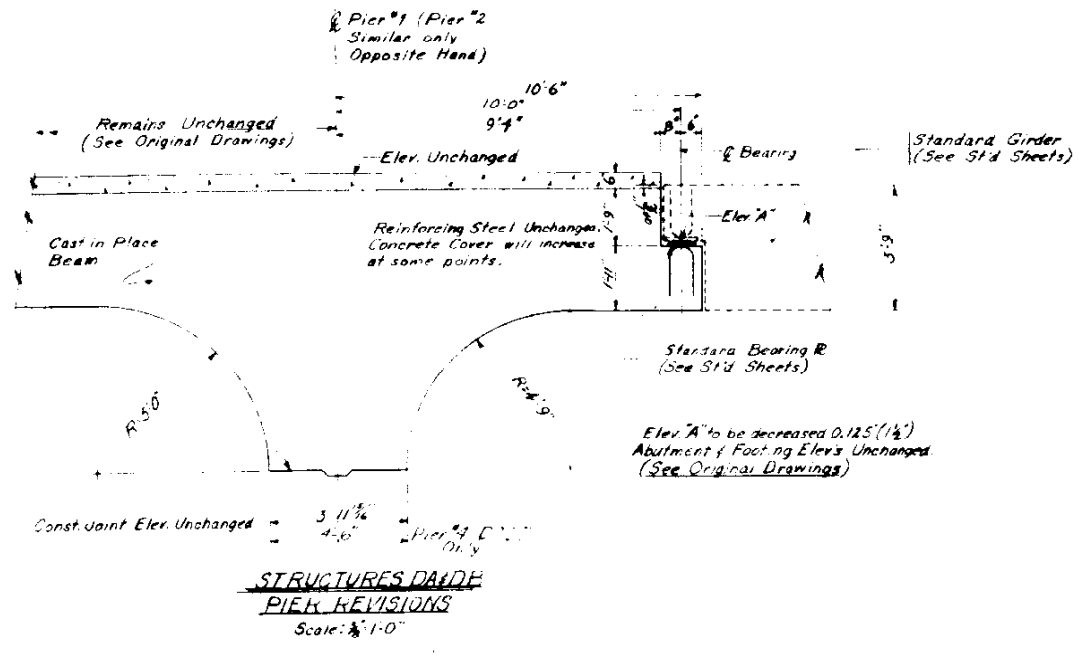 ℄ Pier #1 (Pier #2
Similar only
Opposite Hand)
10'-6"
10'-0"
9'-4"
8" 6"
Remains Unchanged
(See Original Drawings)
Elev. Unchanged
℄ Bearing
Standard Girder
(See St'd Sheets)
6"
1'-9"
1'-11"
Elev. "A"
3'-9"
Cast in Place
Beam
Reinforcing Steel Unchanged.
Concrete Cover will increase
at some points.
Standard Bearing ℞
(See St'd Sheets)
R=5'-0"
R=4'-9"
Elev. "A" to be decreased 0.125' (1½")
Abutment & Footing Elev's Unchanged.
(See Original Drawings)
Const. Joint Elev. Unchanged
4'-6"
Only
STRUCTURES DA & DB
PIER REVISIONS
Scale: 1'-0"